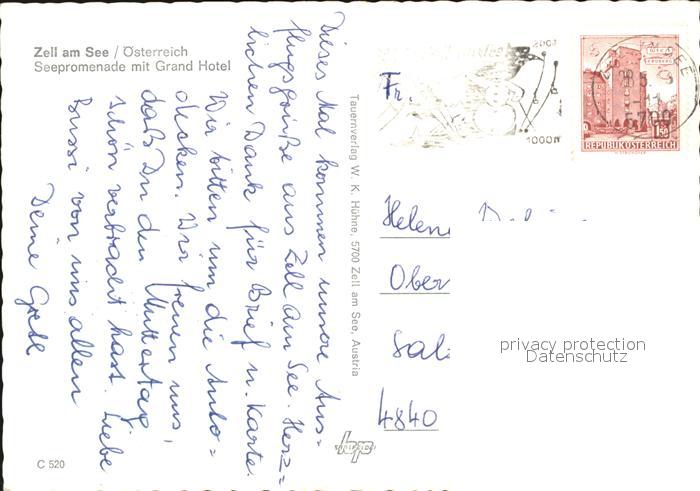 Zell am See / Österreich
Seepromenade mit Grand Hotel
Dieses Mal kommen unsere Aus=
flugsgrüße aus Zell am See. Herz=
lichen Dank für Brief u. Karte.
Wir bitten um die Auto=
decken. Wir freuen uns,
daß Du den Muttertag
schön verbracht hast. Liebe
Bussi von uns allen
Deine Gretl
C 520
Tauernverlag W. K. Hühne, 5700 Zell am See, Austria
2001
1000m
WIEN
5700
1.50
REPUBLIK ÖSTERREICH
Fr.
Helen
Ober
Sal
4840
privacy protection
Datenschutz